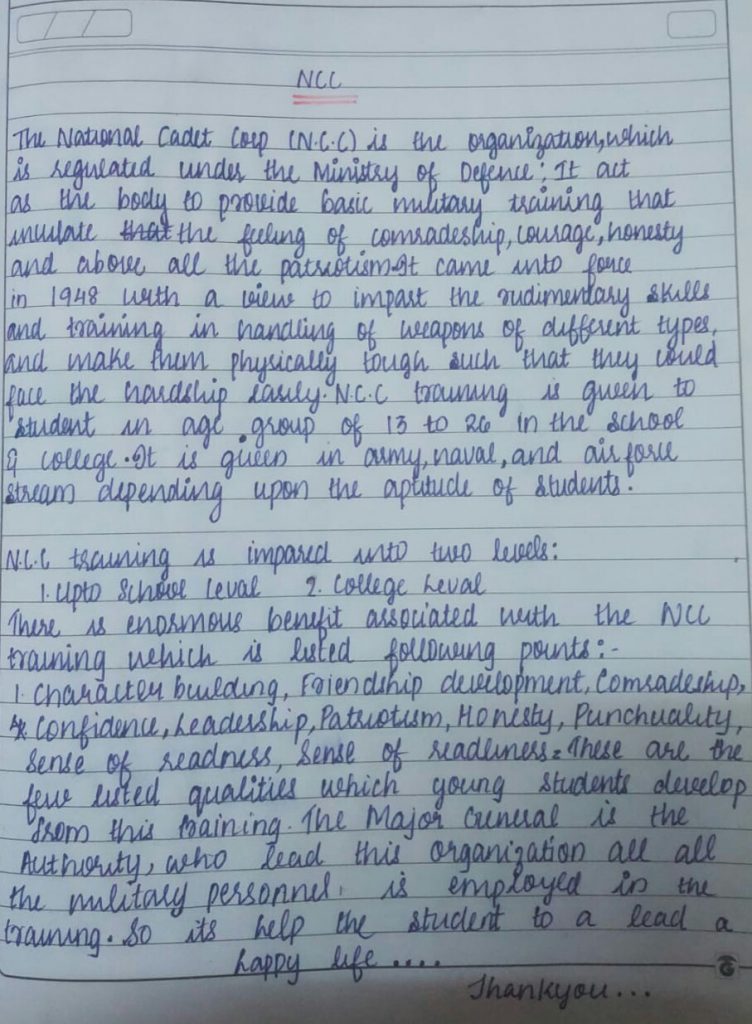 NCC
The National Cadet Corp (N.C.C) is the organization, which
is regulated under the Ministry of Defence; It act
as the body to provide basic military training that
inculate that the feeling of comradeship, courage, honesty
and above all the patriotism. It came into force
in 1948 with a view to impart the rudimentary skills
and training in handling of weapons of different types,
and make them physically tough such that they could
face the hardship easily. N.C.C training is gueen to
student in age group of 13 to 26 in the school
& college. It is gueen in army, naval, and air force
stream depending upon the aptitude of students.
N.C.C training is impared into two levels:
1. Upto School Leval 2. College Leval
There is enormous benefit associated with the NCC
training which is listed following points:-
1. Character building, Friendship development, Comradeship,
Confidence, Leadership, Patriotism, Honesty, Punchuality,
sense of readness, sense of readiness. These are the
few listed qualities which young students develop
from this training. The Major Genual is the
Authority, who lead this organization all all
the military personnel, is employed in the
training. So its help the student to a lead a
happy life ....
Thankyou...